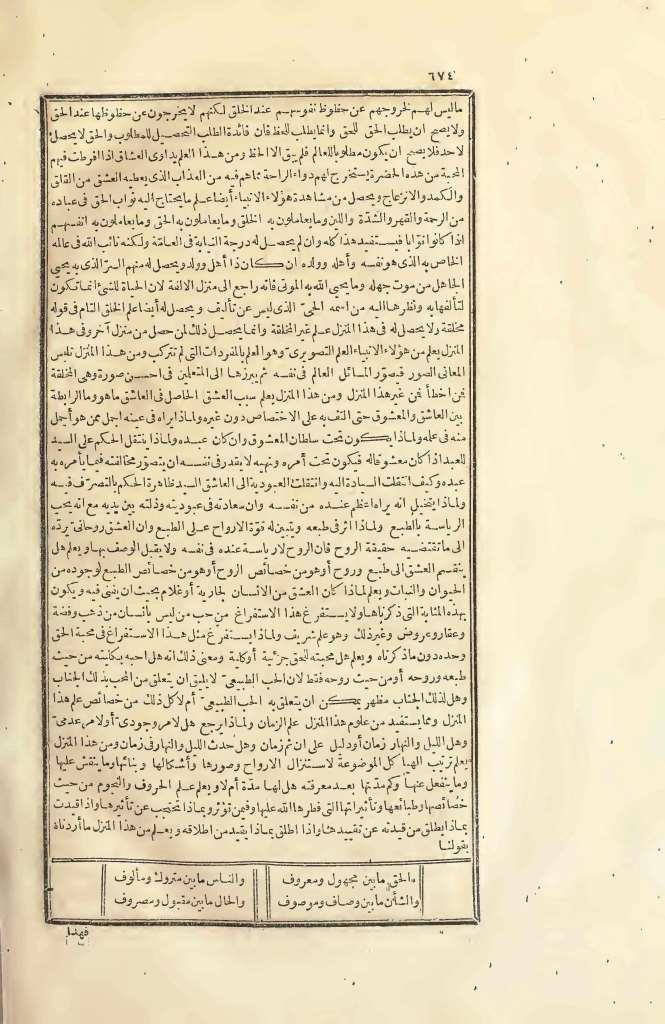 ٦٧٤
ماليس لهم لخروجهم عن حظوظ نفوسهم عند الخلق لكنهم لا يخرجون عن حظوظها عند الحق
ولا يصح ان يطلب الحق للحق وانما يطلب للحظ فان فائدة الطلب التحصيل للمطلوب والحق لا يحصل
لاحد فلا يصح ان يكون مطلوبا للعالم فلم يبق الا الحظ ومن هذا العلم يداوى العشاق اذا افرطت فيهم
المحبة من هذه الحضرة يستخرج لهم دواء الراحة مما هم فيه من العذاب الذى يعطيه العشق من القلق
والكمد والانزعاج ويحصل من مشاهدة هؤلاء الانبياء أيضا علم ما يحتاج اليه نواب الحق فى عباده
من الرحمة والقهر والشدة واللين وما يعاملون به الخلق وما يعاملون به الحق وما يعاملون به انفسهم
اذا كانوا نوابا فيستفيد هذا كله وان لم يحصل له درجة النيابة فى العامة ولكنه نائب الله فى عالمه
الخاص به الذى هو نفسه وأهله وولده ان كان ذا أهل وولد ويحصل له منهم السر الذى به يحيى
الجاهل من موت جهله وما يحيى الله به الموتى فانه راجع الى منزل الالفة لان الحياة للشئ انما تكون
لتألفها به ونظرها اليه من اسمه الحى الذى ليس عن تأليف ويحصل له أيضا علم الخلق التام فى قوله
مخلقة ولا يحصل له فى هذا المنزل علم غير المخلقة وانما يحصل ذلك لمن حصل من منزل آخر وفى هذا
المنزل يعلم من هؤلاء الانبياء العلم التصويرى وهو العلم بالمفردات التى لم تتركب ومن هذا المنزل تلبس
المعانى الصور فيصور المسائل العالم فى نفسه ثم يبرزها الى المتعلمين فى احسن صورة وهى المخلقة
فمن اخطأ فمن غير هذا المنزل ومن هذا المنزل يعلم سبب العشق الحاصل فى العاشق ما هو وما الرابطة
بين العاشق والمعشوق حتى التف به على الاختصاص دون غيره ولماذا يراه فى عينه اجمل ممن هو أجمل
منه فى علمه ولماذا يكون تحت سلطان المعشوق وان كان عبده ولماذا ينتقل الحكم على السيد
للعبد اذا كان معشوقا له فيكون تحت أمره ونهيه لا يقدر فى نفسه ان يتصور مخالفته فيما يأمره به
عبده وكيف انتقلت السيادة اليه وانتقلت العبودية الى العاشق السيد ظاهرة الحكم بالتصرف فيه
ولماذا يتخيل انه يراه اعظم عنده من نفسه وان سعادته فى عبوديته وذلته بين يديه مع انه يحب
الرياسة بالطبع ولماذا اثر فى طبعه ويتبين له قوة الارواح على الطبع وان العشق روحانى يرده
الى ما تقتضيه حقيقة الروح فان الروح لا رياسة عنده فى نفسه ولا يقبل الوصف بها ويعلم هل
ينقسم العشق الى طبع وروح أو هو من خصائص الروح أو هو من خصائص الطبع لوجوده من
الحيوان والنبات ويعلم لماذا كان العشق من الانسان لجارية أو غلام بحيث ان يفنى فيه ويكون
بهذه المثابة التى ذكرناها ولا يستفرغ هذا الاستفراغ من حب من ليس بانسان من ذهب وفضة
وعقار وعروض وغير ذلك وهو علم شريف ولماذا يستفرغ مثل هذا الاستفراغ فى محبة الحق
وحده دون ما ذكرناه ويعلم هل محبته للحق جزئية أو كلية ومعنى ذلك انه هل احبه بكليته من حيث
طبعه وروحه أو من حيث روحه فقط لان الحب الطبيعى لا يليق ان يتعلق من المحب بذلك الجناب
وهل لذلك الجناب مظهر يمكن ان يتعلق به الحب الطبيعى أم لا كل ذلك من خصائص علم هذا
المنزل ومما يستفيد من علوم هذا المنزل علم الزمان ولماذا يرجع هل لامر وجودى أو لامر عدمى
وهل الليل والنهار زمان أو دليل على ان ثم زمان وهل حدث الليل والنهار فى زمان ومن هذا المنزل
يعلم ترتيب الهياكل الموضوعة لاستنزال الارواح وصورها وأشكالها وبنائها وما ينقش عليها
وما ينفعل عنها وكم مدتها بعد معرفته هل لها مدة أم لا ويعلم علم الحروف والنجوم من حيث
خصائصها وطبائعها وتأثيراتها التى فطرها الله عليها وفيمن تؤثر وبماذا تحتجب عن تأثيرها واذا قيدت
بماذا يطلق من قيدته عن تقييد هذا واذا اطلق بماذا يقيد من اطلاقه ويعلم من هذا المنزل ما أردناه
بقولنا
والحق ما بين مجهول ومعروف والناس ما بين متروك ومألوف
والشأن ما بين وصاف وموصوف والحال ما بين مقبول ومصروف
فهذا